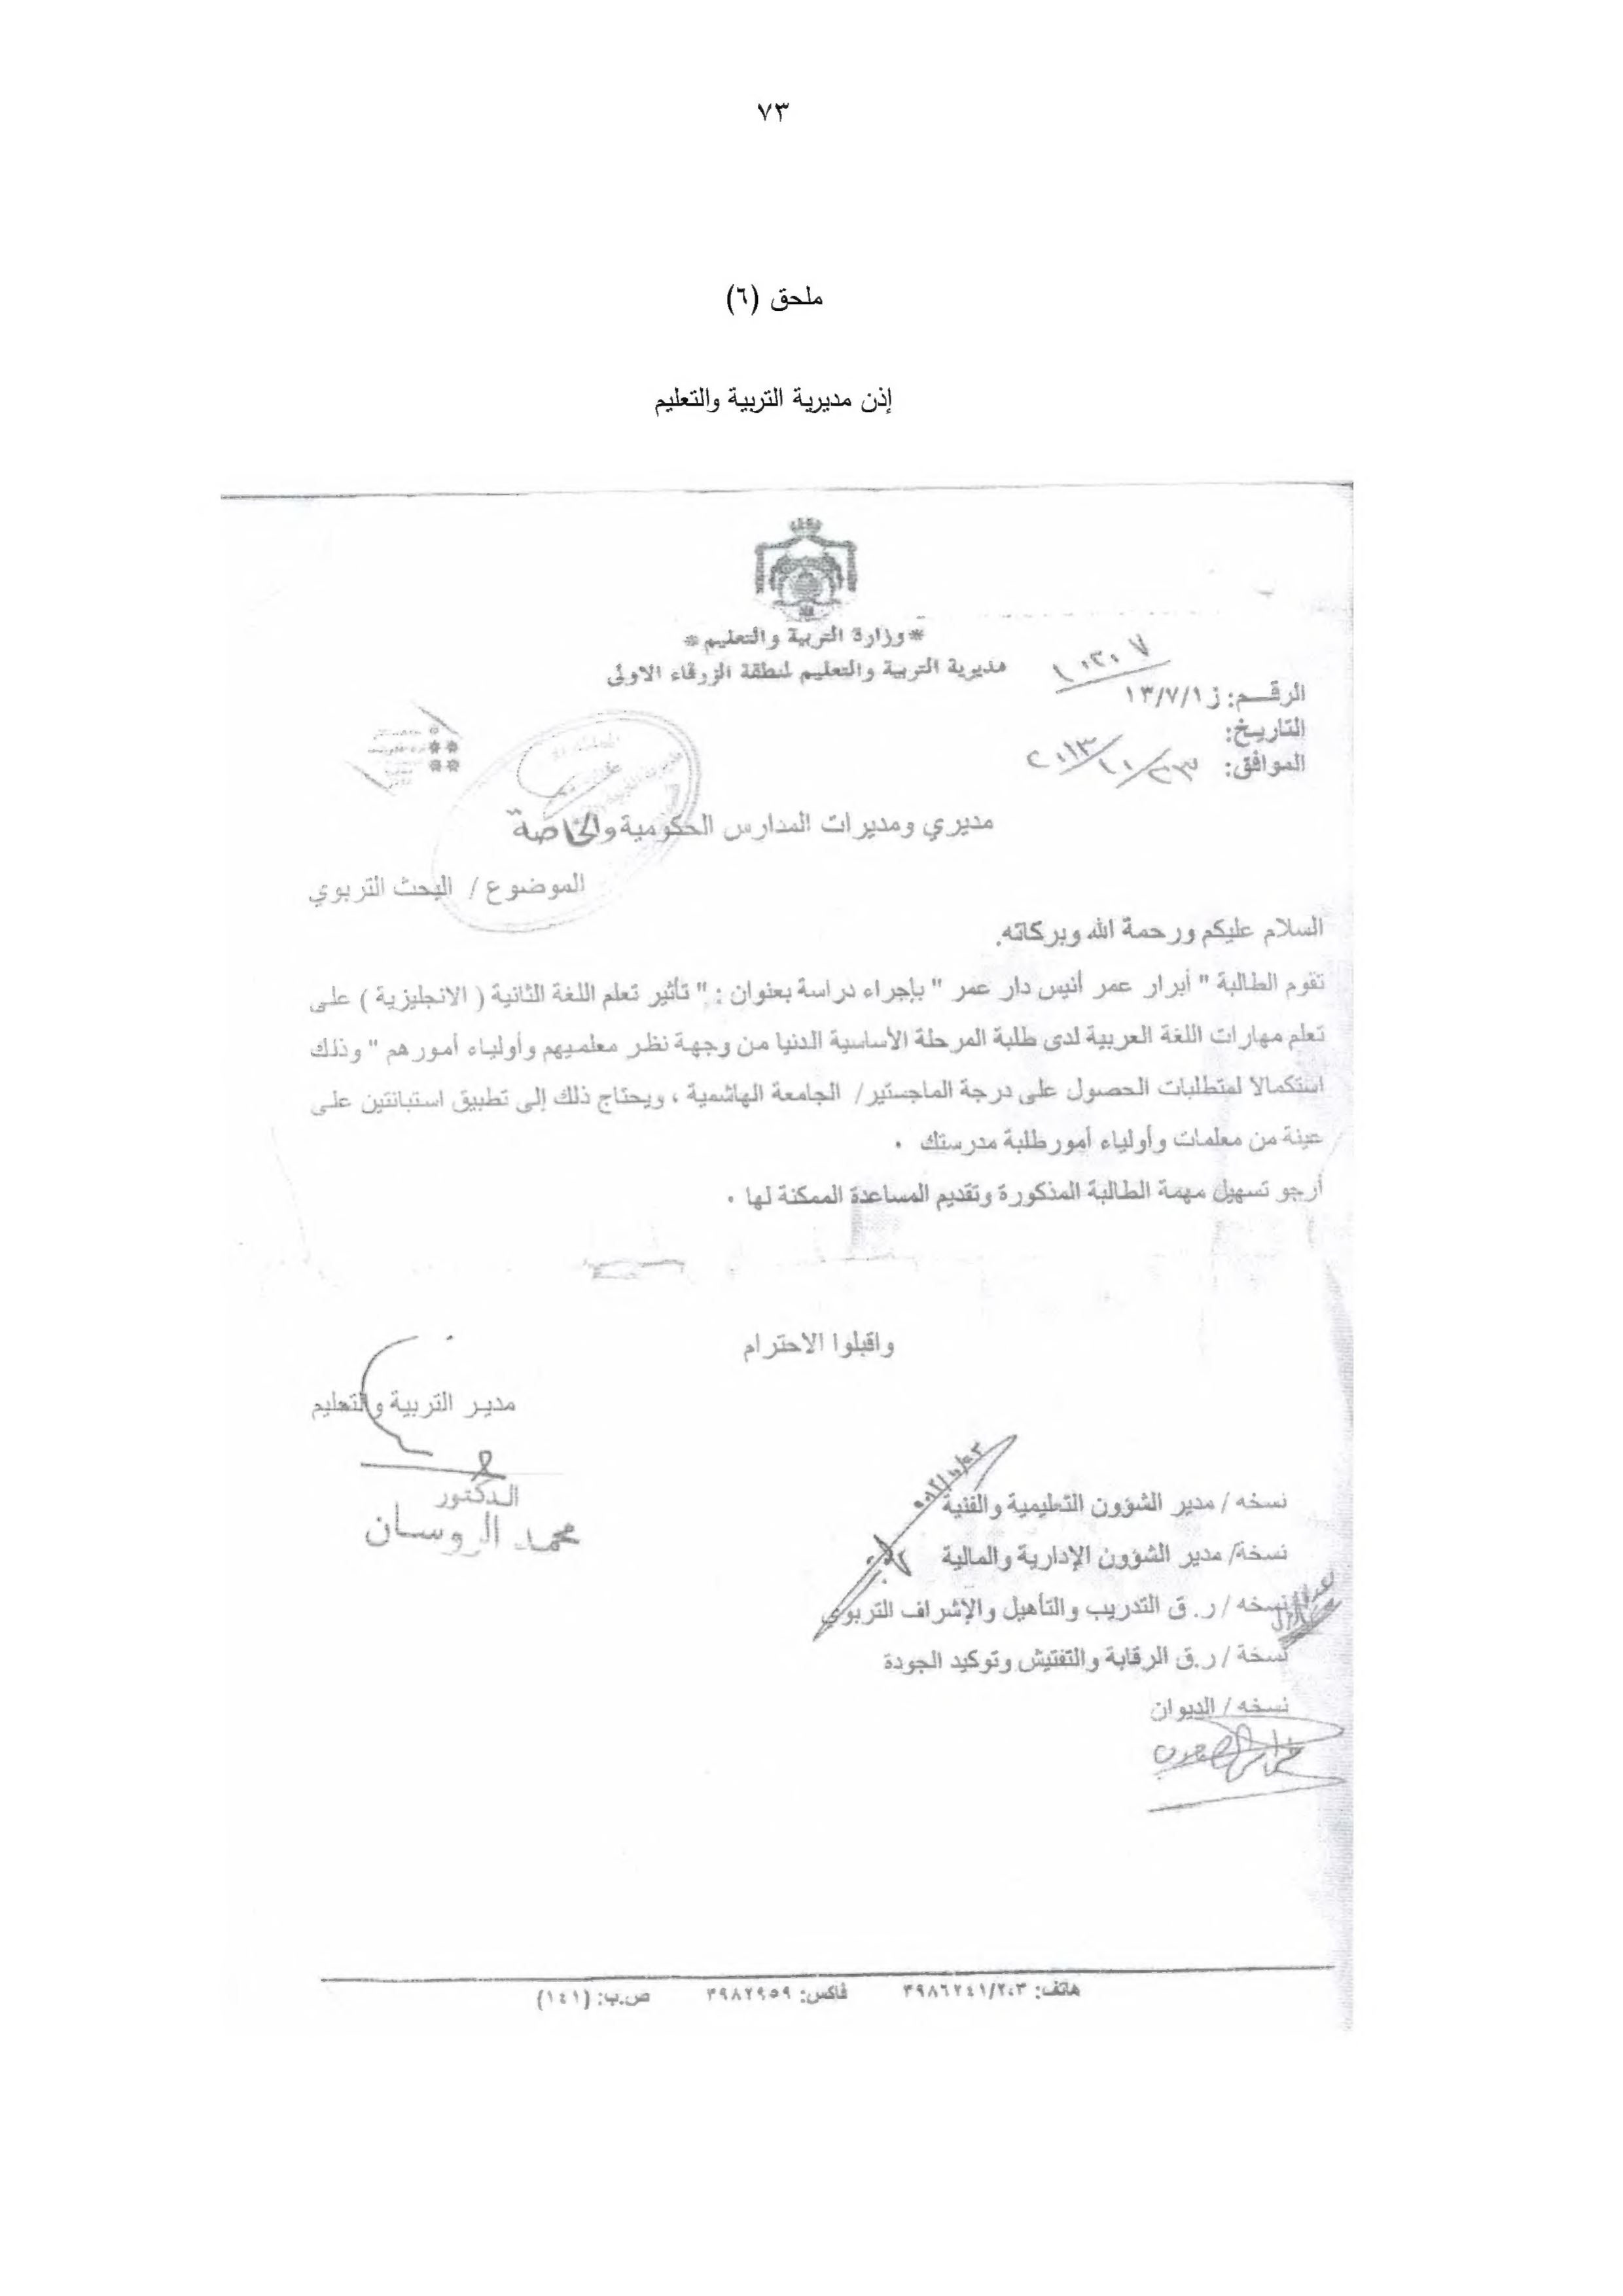 ٧٣
ملحق (٦)
إذن مديرية التربية والتعليم
*وزارة التربية والتعليم*
مديرية التربية والتعليم لمنطقة الزرقاء الاولى
١٠٣٠٧
الرقم: ز١٣/٧/١
التاريخ:
الموافق: ٢٠١٣/١٠/٢٣
مديري ومديرات المدارس الحكومية والخاصة
الموضوع / البحث التربوي
السلام عليكم ورحمة الله وبركاته.
تقوم الطالبة " أبرار عمر أنيس دار عمر " بإجراء دراسة بعنوان : " تأثير تعلم اللغة الثانية ( الانجليزية ) على
تعلم مهارات اللغة العربية لدى طلبة المرحلة الأساسية الدنيا من وجهة نظر معلميهم وأولياء أمورهم " وذلك
استكمالا لمتطلبات الحصول على درجة الماجستير/ الجامعة الهاشمية ، ويحتاج ذلك إلى تطبيق استبانتين على
عينة من معلمات وأولياء أمورطلبة مدرستك .
أرجو تسهيل مهمة الطالبة المذكورة وتقديم المساعدة الممكنة لها .
واقبلوا الاحترام
مدير التربية والتعليم
الدكتور
محمد الروسان
نسخه / مدير الشؤون التعليمية والفنية
نسخة/ مدير الشؤون الإدارية والمالية
نسخه / ر. ق التدريب والتأهيل والإشراف التربوي
نسخة / ر.ق الرقابة والتفتيش وتوكيد الجودة
نسخه / الديوان
هاتف: ٣٩٨٦٢٤١/٢،٣ فاكس: ٣٩٨٢٩٥٩ ص.ب: (١٤١)